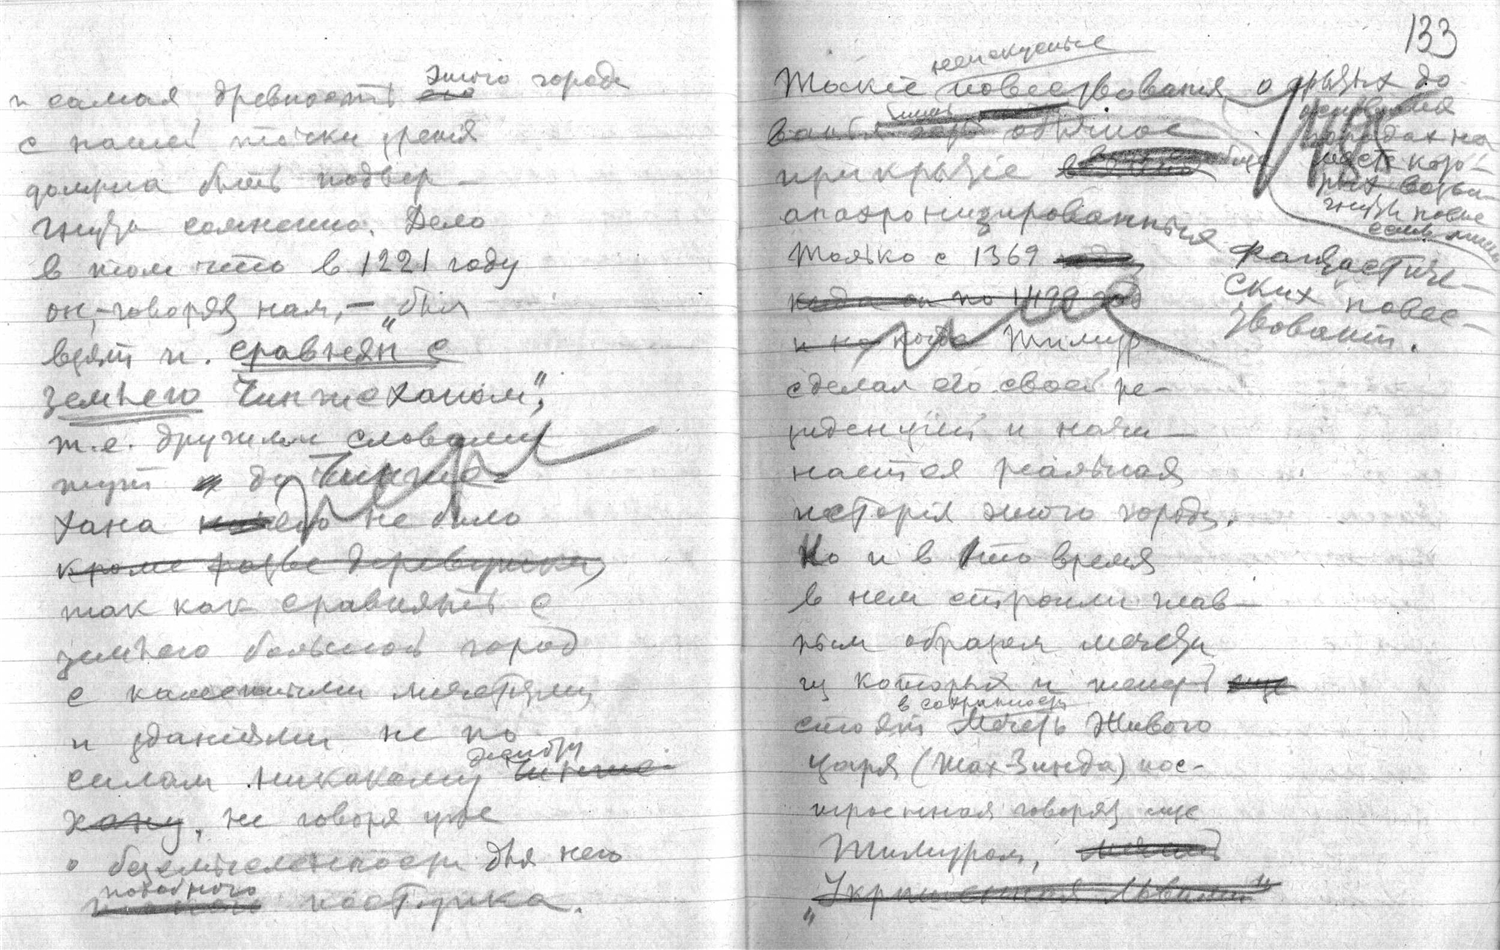 и самая древность этого города
с нашей точки зрения
должна быть подвер-
гнута сомнению. Дело
в том что в 1221 году
он, – говорят нам, – „был
взят и сравнен с
землею Чингисханом",
т.е. другими словами
тут до Чингис-
хана ничего не было
кроме разве деревушки,
так как сравнять с
землею большой город
с каменными мечетями
и зданиями не по
силам никакому Чингис-
деспоту
хану, не говоря уже
о безсмысленности для него
подобного
поступка.
133
неискусные
Такие повествования о
обычное
прикрытие
анахронизированныя
фантастиче-
ских повес-
твований.
Только с 1369
когда он по 1499 год
и когда Тимур
сделал его своей ре-
зиденцией и начи-
нается реальная
история этого города.
Но и в это время
в нем строили глав-
ным образом мечети
из которых и теперь еще
в сохранности
стоят Мечеть Живого
царя (Шах-Зинда) пос-
троенная говорят еще
Тимуром,
„Украшенная Львами"